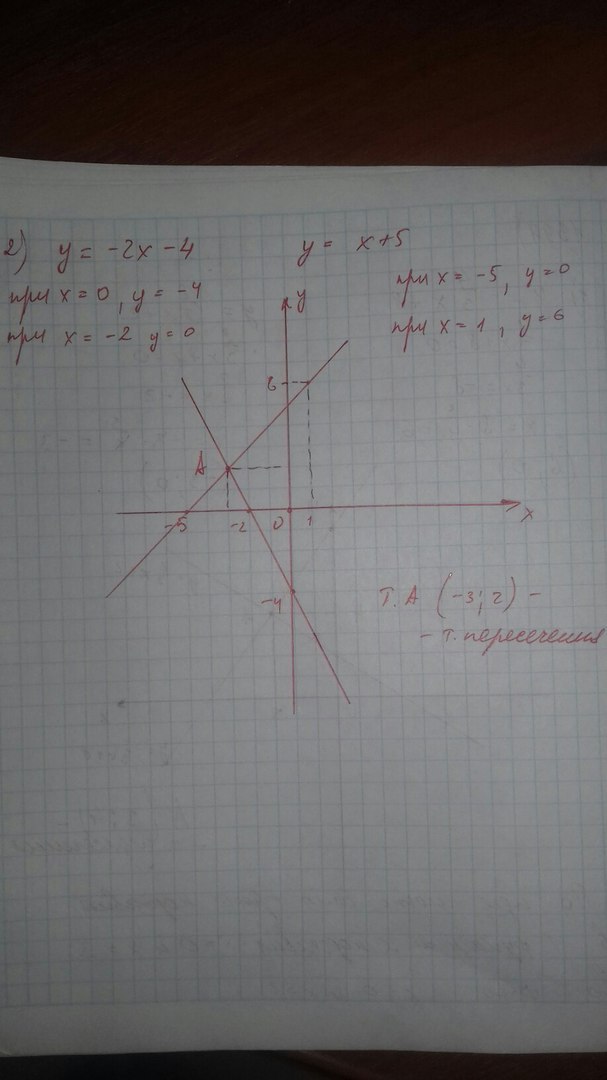 2) y = -2x - 4
при x = 0, y = -4
при x = -2 y = 0
y = x+5
при x = -5, y = 0
при x = 1, y = 6
y
6
A
-5 -2 0 1 x
-4
т. A (-3; 2) -
- т. пересечения